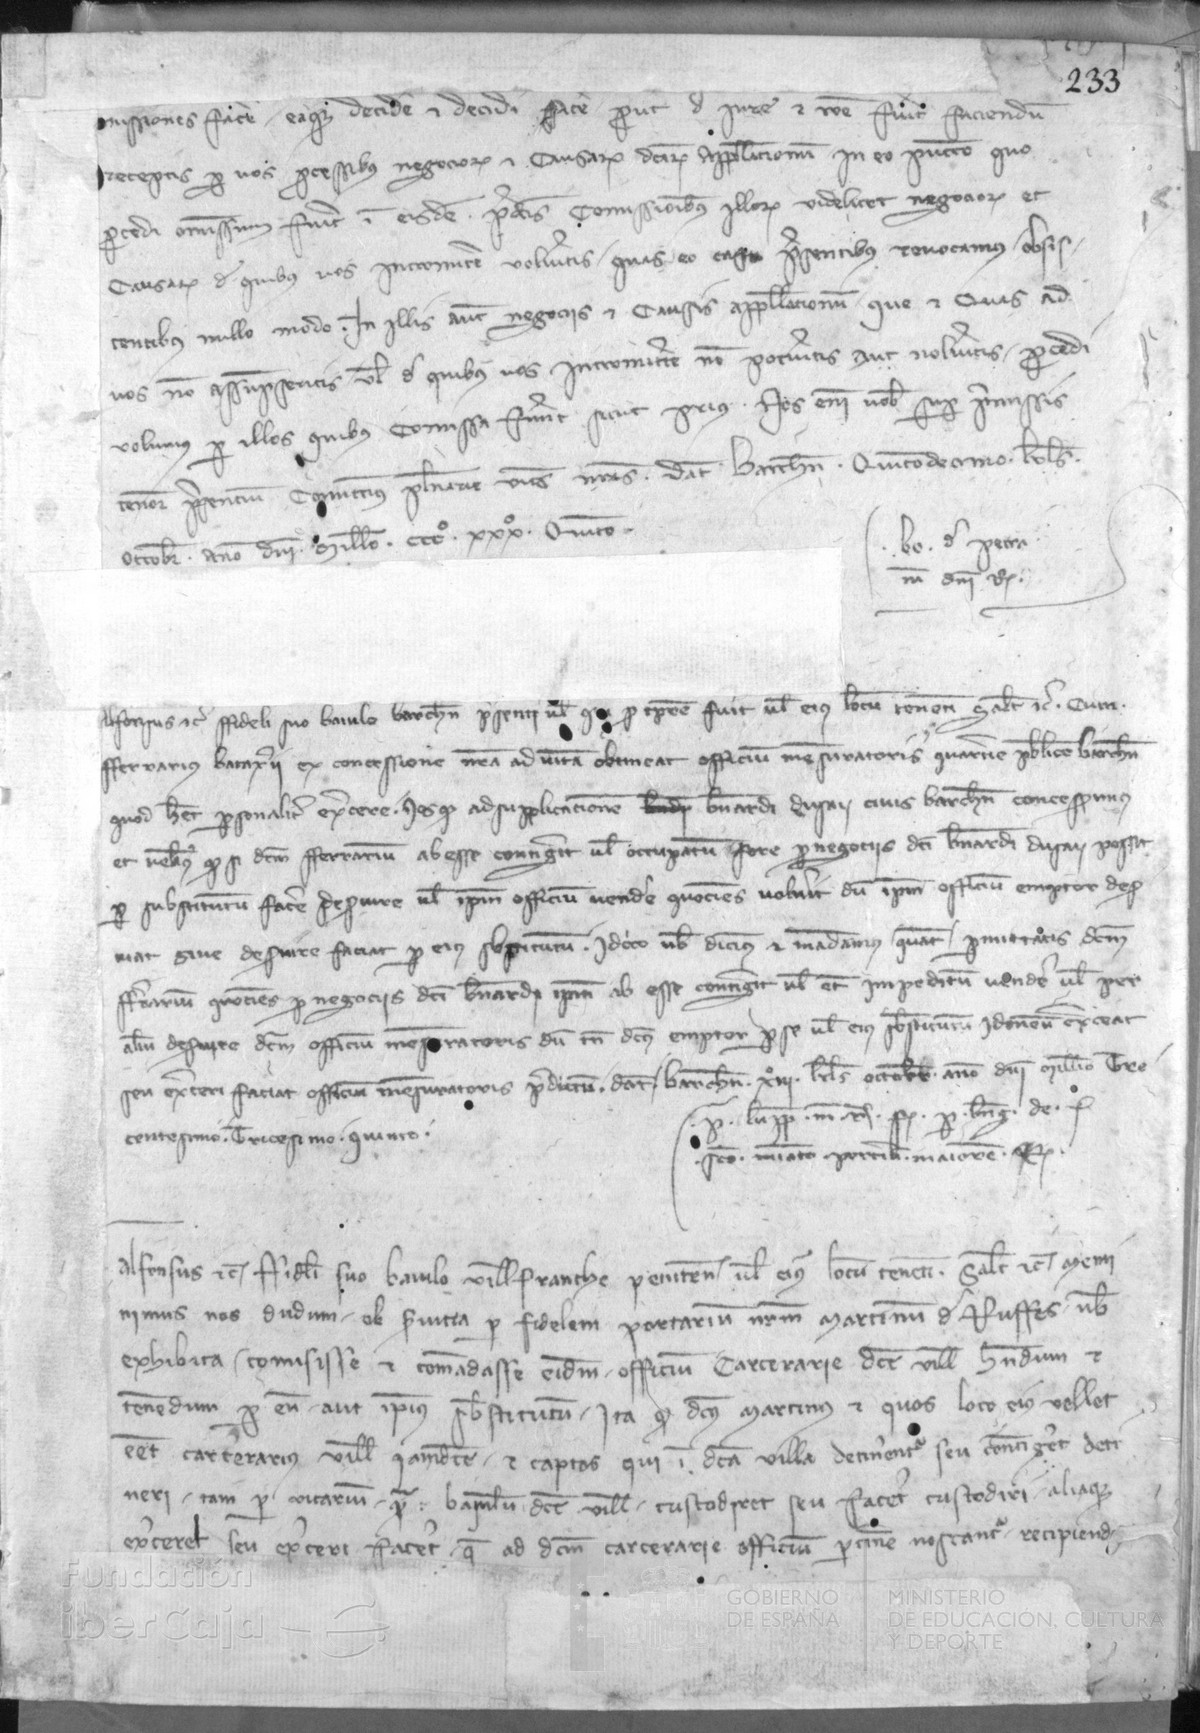 233
missiones facere eaque decidere et decidi facere prout de iure et racione fuerit faciendum
receptis per vos processibus negociorum et causarum dictarum appellacionum in eo puncto quo
procedi omissum fuerit in eisdem predictis comissionibus illorum videlicet negociorum et
causarum de quibus vos intromittere volueritis quas eo casu presentibus revocamus obsis-
tentibus nullo modo. In illis autem negociis et causis appellacionum que et quas ad
vos non assumpseritis vel de quibus vos intromittere non poteritis aut nolueritis procedi
volumus per illos quibus comissa fuerint sicut prius. Nos enim vobis super premissis
tenore presentium comittimus plenarie vices nostras. Dat. Barchn. Quintodecimo kalendas
Octobr. anno dni. Millo. CCCº. XXXº. Quinto.
bo. de petra
m dni R.
Alfonsus etc. ffideli suo baiulo barchn presenti vel qui pro tempore fuerit vel eius locum tenenti Salt etc. Cum
fferrarius ex concessione nostra ad vitam obtineat officium mensuratoris quarterie publice barchn
quod habet personaliter exercere. Nosque ad supplicacionem bernardi civis barchn concesserimus
et velimus quod si dictum fferrarium abesse contigerit vel occupatum fore pro negociis dicti bernardi possit
per substitutum facere deservire vel ipsum officium vendere quociens voluerit dum ipsum officium emptor deser
viat sive deservire faciat per eius substitutum. Idcirco vobis dicimus et mandamus quatenus permittatis dictum
fferrarium quociens pro negociis dicti bernardi ipsum abesse contigerit vel esse impeditum vendere vel per
alium deservire dictum officium mensuratoris dum tamen dictus emptor per se vel eius substitutum idoneum exerceat
seu exerceri faciat officium mensuratoris predictum. Dat. barchn. kals octobr. anno dni Millo Tre
centesimo. Tricesimo. quinto.
Alfonsus etc. ffideli suo baiulo villefranche peniten. vel eius locum tenenti. Salt etc. Memi
nimus nos dudum ob servicia per fidelem portarium nostrum Martinum de Ruffes vobis
exhibita comisisse et comendasse eidem officium carcerarie dicte ville habendum et
tenendum per eum aut ipsius substitutum. Ita quod dictus Martinus et quos loco eius vellet
esset carcerarius ville iamdicte et captos qui in dicta villa detinerentur seu contigeret deti
neri tam per vicarium quam baiulum dicte ville custodiret seu faceret custodiri aliaque
exerceret seu exerceri faceret que ad dictum carcerarie officium pertinere noscantur recipiend
Fundación
iberCaja
GOBIERNO
DE ESPAÑA
MINISTERIO
DE EDUCACIÓN, CULTURA
Y DEPORTE